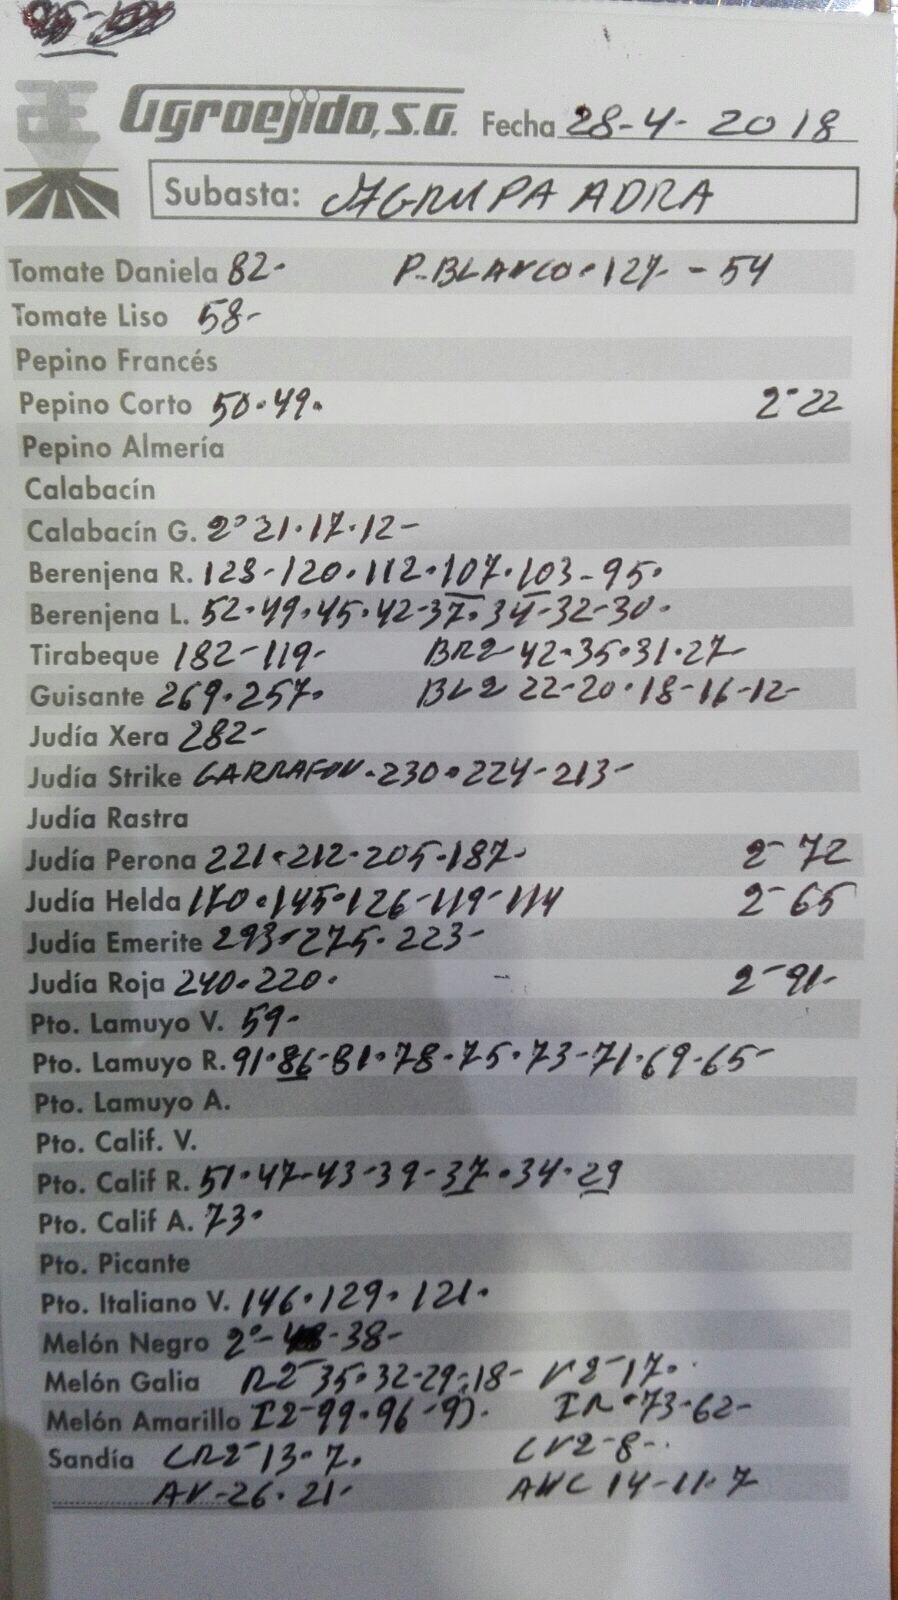 Agroejido, S.A. Fecha 28-4-2018
Subasta: AGRUPA ADRA
Tomate Daniela 82- P.BLANCO·127-54
Tomate Liso 58-
Pepino Francés
Pepino Corto 50·49· 2-22
Pepino Almería
Calabacín
Calabacín G. 2º21·17·12-
Berenjena R. 128-120·112·107·103-95·
Berenjena L. 52·49·45·42-37·34-32-30·
Tirabeque 182-119- BR2-42-35·31·27-
Guisante 269·257· BL2 22-20·18-16-12-
Judía Xera 282-
Judía Strike GARRAFON-230·224-213-
Judía Rastra
Judía Perona 221·212-205-187- 2-72
Judía Helda 170·145·126-119-114 2-65
Judía Emerite 293-275·223-
Judía Roja 240·220· 2-91-
Pto. Lamuyo V. 59-
Pto. Lamuyo R. 91·86-81·78-75·73-71·69-65-
Pto. Lamuyo A.
Pto. Calif. V.
Pto. Calif R. 51·47-43-39-37·34·29
Pto. Calif A. 73·
Pto. Picante
Pto. Italiano V. 146·129·121·
Melón Negro 2º- -38-
Melón Galia R2-35·32-29-18- V2-17·
Melón Amarillo I2-99·96- IR·73-62-
Sandía CR2-13·7· CV2-8-
AV-26·21- ANC 14-11·7